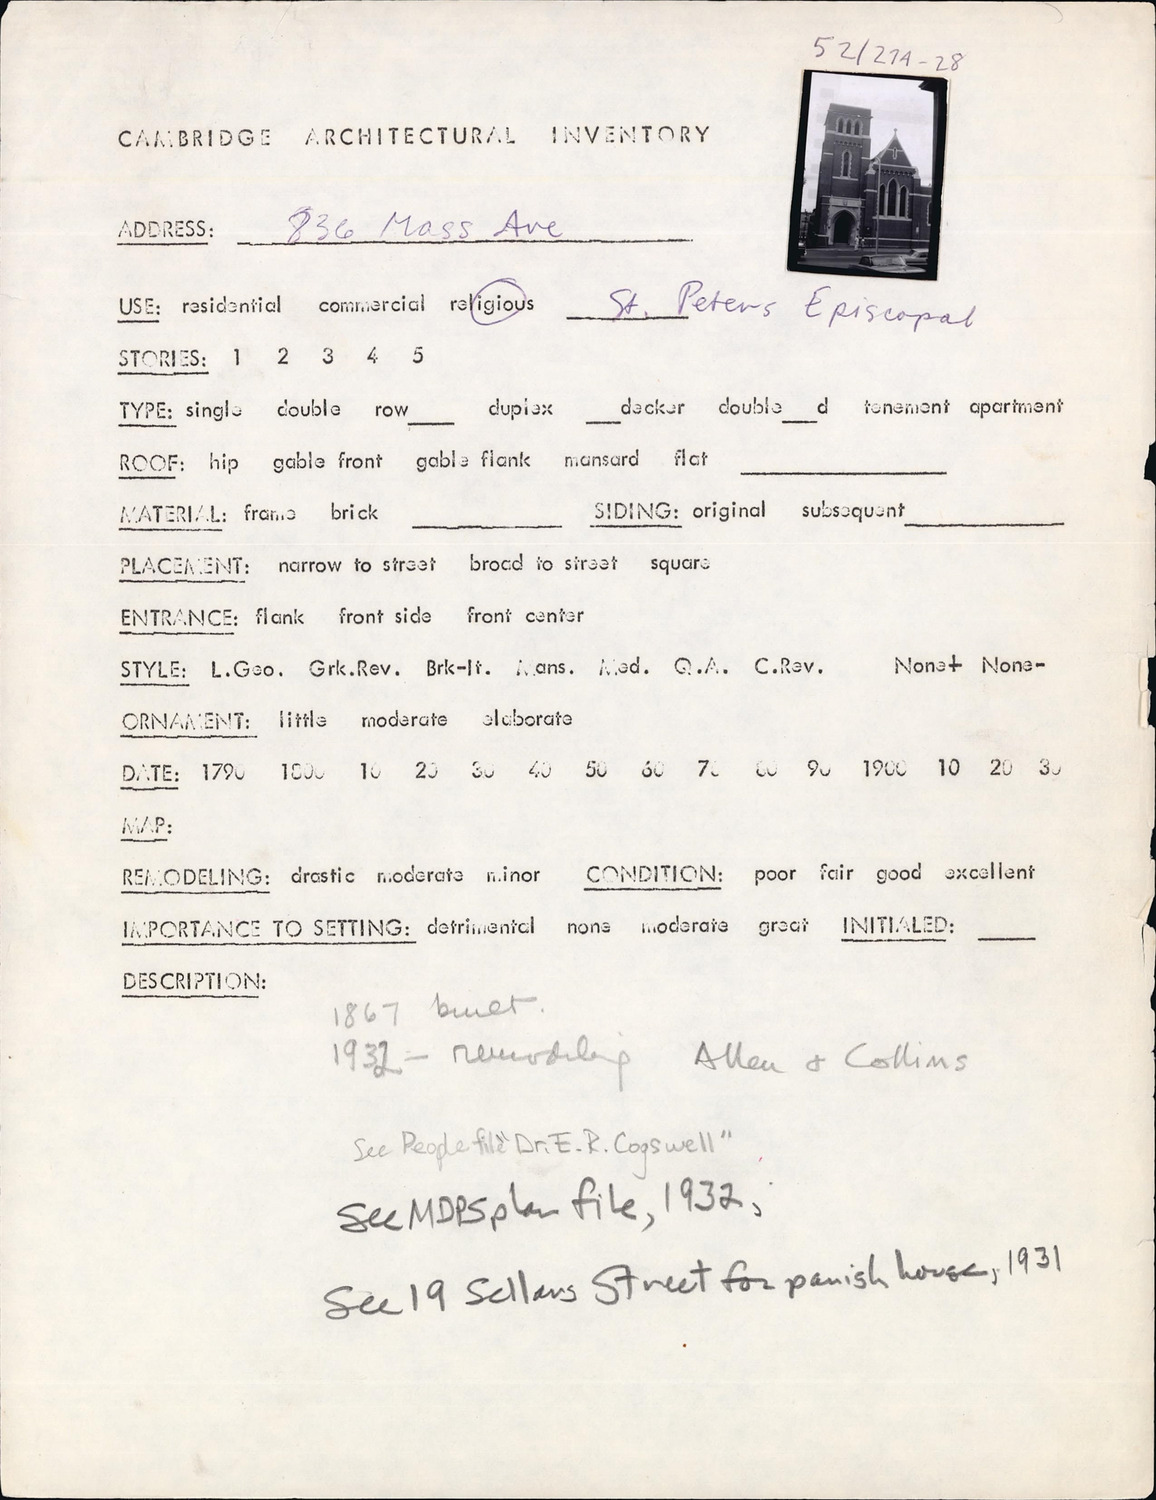 52/274-28
CAMBRIDGE ARCHITECTURAL INVENTORY
ADDRESS: 836 Mass Ave
USE: residential commercial religious St. Peters Episcopal
STORIES: 1 2 3 4 5
TYPE: single double row____ duplex ___decker double___d tenement apartment
ROOF: hip gable front gable flank mansard flat
MATERIAL: frame brick SIDING: original subsequent
PLACEMENT: narrow to street broad to street square
ENTRANCE: flank front side front center
STYLE: L.Geo. Grk.Rev. Brk-It. Mans. Med. Q.A. C.Rev. None+ None-
ORNAMENT: little moderate elaborate
DATE: 1790 1800 10 20 30 40 50 60 70 80 90 1900 10 20 30
MAP:
REMODELING: drastic moderate minor CONDITION: poor fair good excellent
IMPORTANCE TO SETTING: detrimental none moderate great INITIALED:
DESCRIPTION:
1867 built.
1932 - remodeling Allen & Collins
See People file "Dr. E. R. Cogswell"
See MDPS plan file, 1932,
See 19 Sellars Street for parish house, 1931